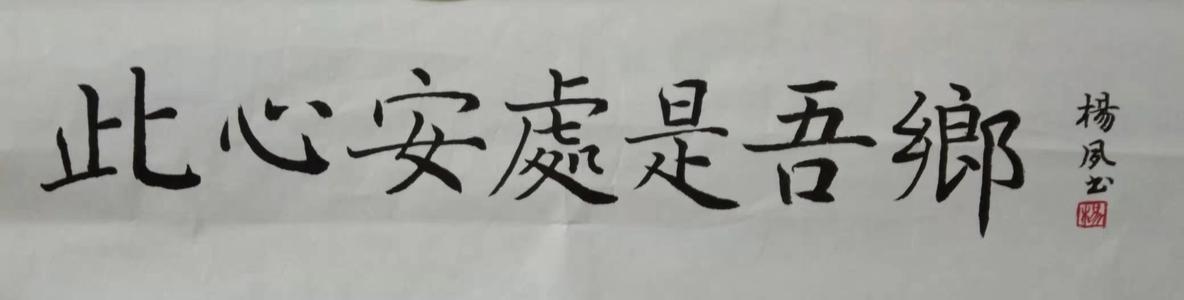 此心安處是吾鄉
楊夙书
楊